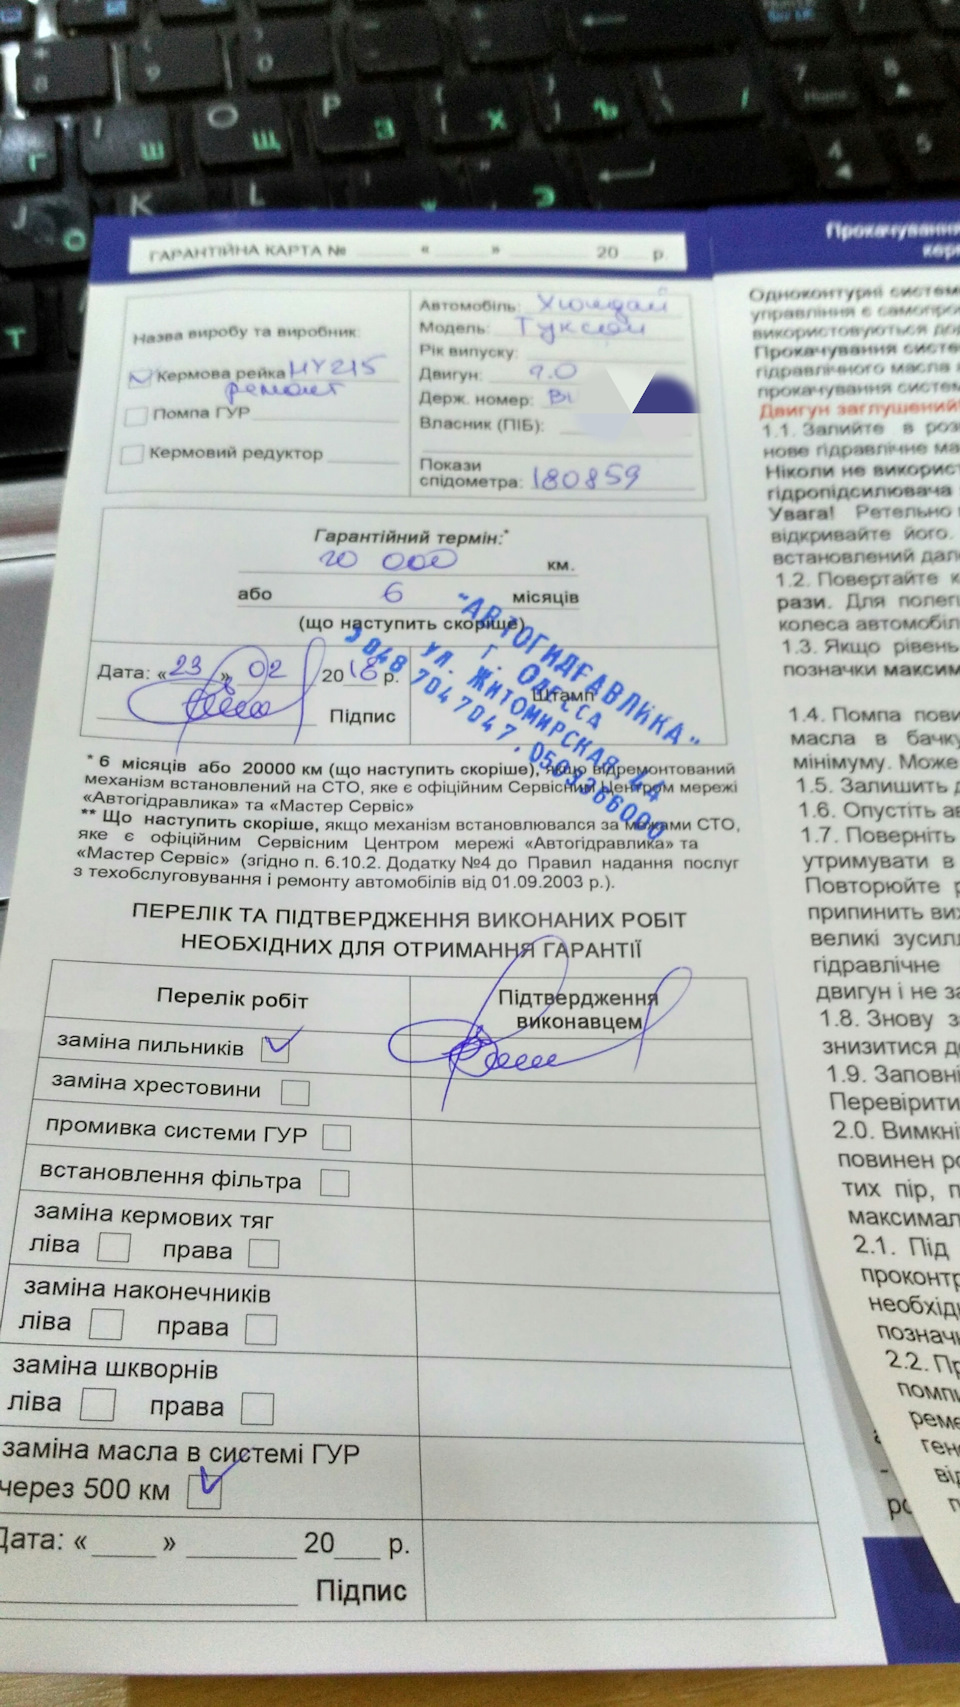 ГАРАНТІЙНА КАРТА № « » 20 р.
Назва виробу та виробник:
Кермова рейка HY215
ремонт
Помпа ГУР
Кермовий редуктор
Автомобіль: Хюндай
Модель: Туксон
Рік випуску:
Двигун: 2.0
Держ. номер:
Власник (ПІБ):
Покази
спідометра: 180859
Гарантійний термін:*
20 000 км.
або 6 місяців
(що наступить скоріше)
Дата: «23» 02 2018 р.
Підпис
Штамп
"АВТОГИДРАВЛИКА"
Г. ОДЕССА
УЛ. ЖИТОМИРСКАЯ,
048 7047047, 0503366000
* 6 місяців або 20000 км (що наступить скоріше), якщо відремонтований
механізм встановлений на СТО, яке є офіційним Сервісним Центром мережі
«Автогідравліка» та «Мастер Сервіс»
** Що наступить скоріше, якщо механізм встановлювався за межами СТО,
яке є офіційним Сервісним Центром мережі «Автогідравліка» та
«Мастер Сервіс» (згідно п. 6.10.2. Додатку №4 до Правил надання послуг
з техобслуговування і ремонту автомобілів від 01.09.2003 р.).
ПЕРЕЛІК ТА ПІДТВЕРДЖЕННЯ ВИКОНАНИХ РОБІТ
НЕОБХІДНИХ ДЛЯ ОТРИМАННЯ ГАРАНТІЇ
Перелік робіт
Підтвердження
виконавцем
заміна пильників
заміна хрестовини
промивка системи ГУР
встановлення фільтра
заміна кермових тяг
ліва права
заміна наконечників
ліва права
заміна шкворнів
ліва права
заміна масла в системі ГУР
через 500 км
Дата: « » 20 р.
Підпис
Прокачування
Одноконтурні систем
управління є самопро
використовуються до
Прокачування сист
гідравлічного масла
прокачування систем
Двигун заглушений!
1.1. Залийте в роз
нове гідравлічне ма
Ніколи не використ
гідропідсилювача
Увага! Ретельно
відкривайте його.
встановлений дал
1.2. Повертайте к
рази. Для полег
колеса автомобіл
1.3. Якщо рівень
позначки максим
1.4. Помпа пови
масла в бачку
мінімуму. Може
1.5. Залишить д
1.6. Опустіть ав
1.7. Поверніть
утримувати в
Повторюйте р
припинить вих
великі зусилл
гідравлічне
двигун і не за
1.8. Знову з
знизитися до
1.9. Заповні
Перевірити
2.0. Вимкні
повинен ро
тих пір, п
максимал
2.1. Під
проконтр
необхід
позначк
2.2. Пр
помпи
реме
ген
від